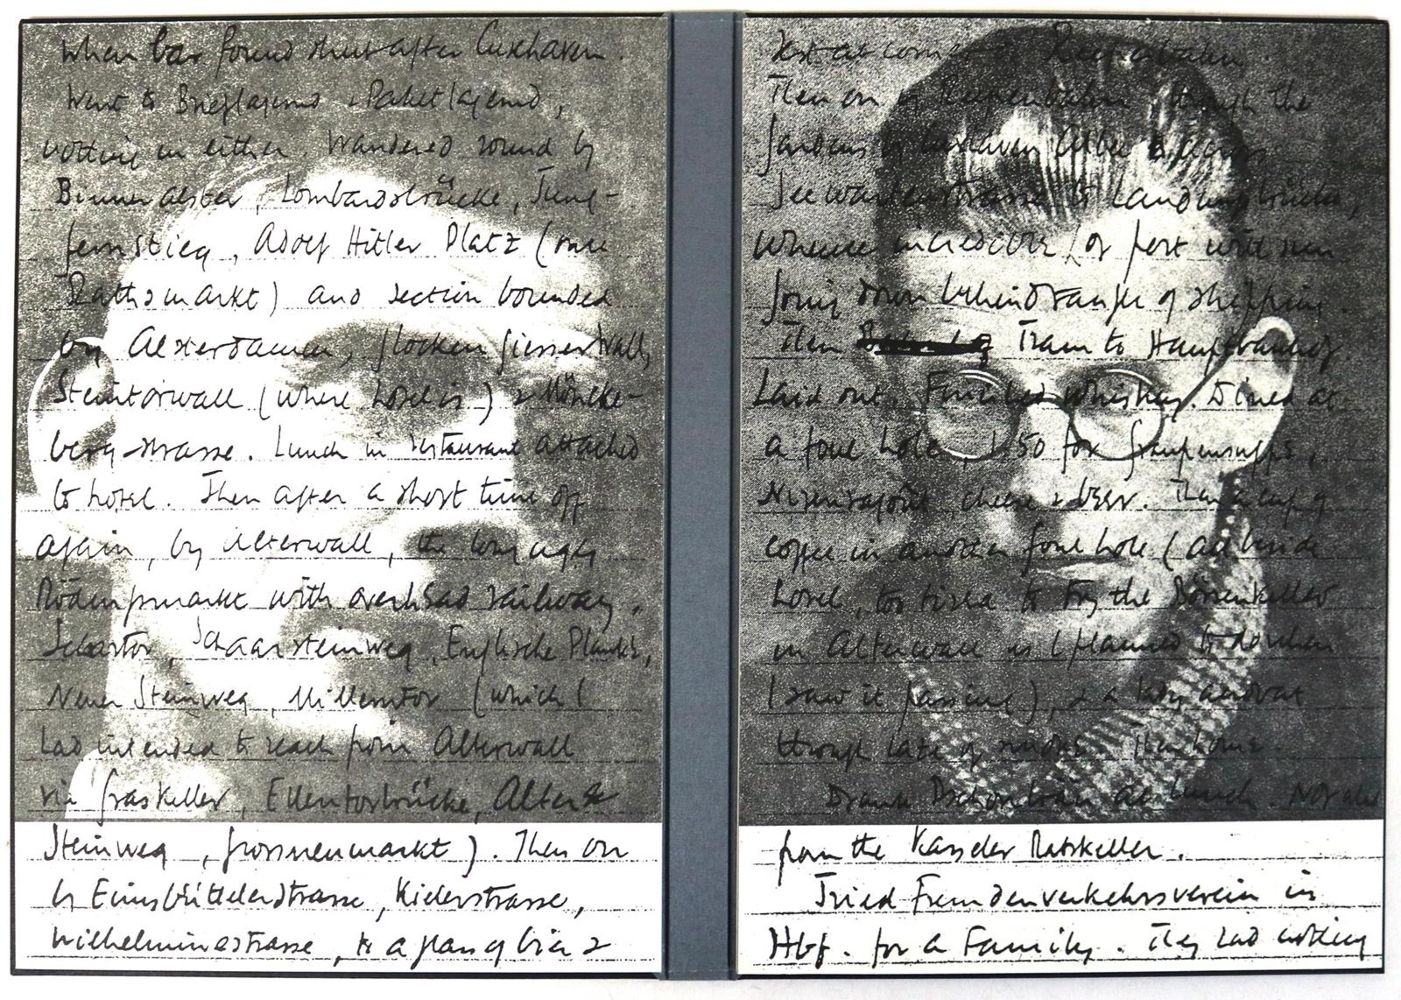 when bar found shut after Cuxhaven.
Went to Brieflagernd & Paketlagernd,
nothing in either. Wandered round by
Binnenalster, Lombardsbrücke, Jung-
fernstieg, Adolf Hitler Platz (once
Rathsmarkt) and section bounded
by Alsterdamm, Glockengiesserwall,
Steintorwall (where hotel is) & Möncke-
bergstrasse. Lunch in restaurant attached
to hotel. Then after a short time off
again, by Alterwall, the long ugly
Rödingsmarkt with overhead railway,
Schaartor, Schaarsteinweg, Englische Planke,
Neuer Steinweg, Millerntor (which I
had intended to reach from Alterwall
via Graskeller, Ellentorbrücke, Alter
Steinweg, Grossneumarkt). Then on
by Eimsbüttelerstrasse, Kielerstrasse,
Wilhelminestrasse, to a glass of bier &
rest at corner Reeperbahn.
Then on by Reeperbahn through the
gardens by Cuxhaven Allee & across
Seewartenstrasse to Landungsbrücke,
whence incredible of port with sun
going down behind tangle of shipping.
Then Tram to Hauptbahnhof
Laid out. Finished whiskey. Dined at
a foul hole, 1.50 for Graupensuppe,
Nierenragout, cheese & beer. Then a cup of
coffee in another foul hole (ad beside
hotel, too tired to try the Börsenkeller
in Alterwall as I planned to do when
I saw it passing), & a
through late Then home.
Drank at lunch. Not
from the Ratskeller.
Tried Fremdenverkehrsverein in
Hbf. for a Family. They had nothing